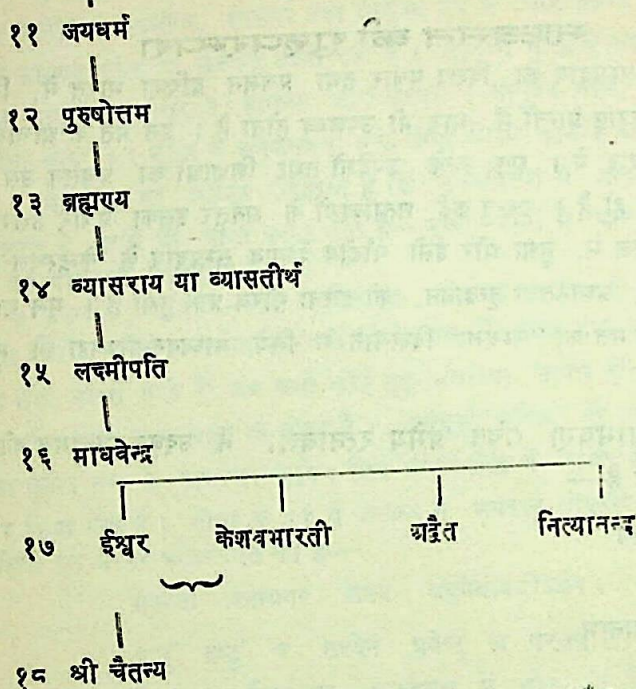 ११ जयधर्म
१२ पुरुषोत्तम
१३ ब्रह्मण्य
१४ व्यासराय या व्यासतीर्थ
१५ लक्ष्मीपति
१६ माधवेन्द्र
१७ ईश्वर केशवभारती अद्वैत नित्यानन्द
१८ श्री चैतन्य